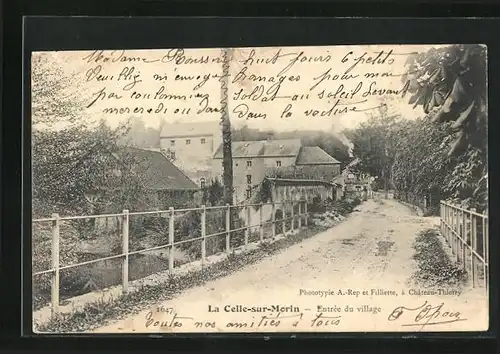 Madame Rousson huit jours 6 petits
Veuillez m'envoyer fromages pour mon
par coulommiers Soldat au soleil Levant
mercredi ou dans dans la voiture
1647
Phototypie A.-Rep et Filliette, à Château-Thierry
La Celle-sur-Morin — Entrée du village
Toutes nos amitiés à tous